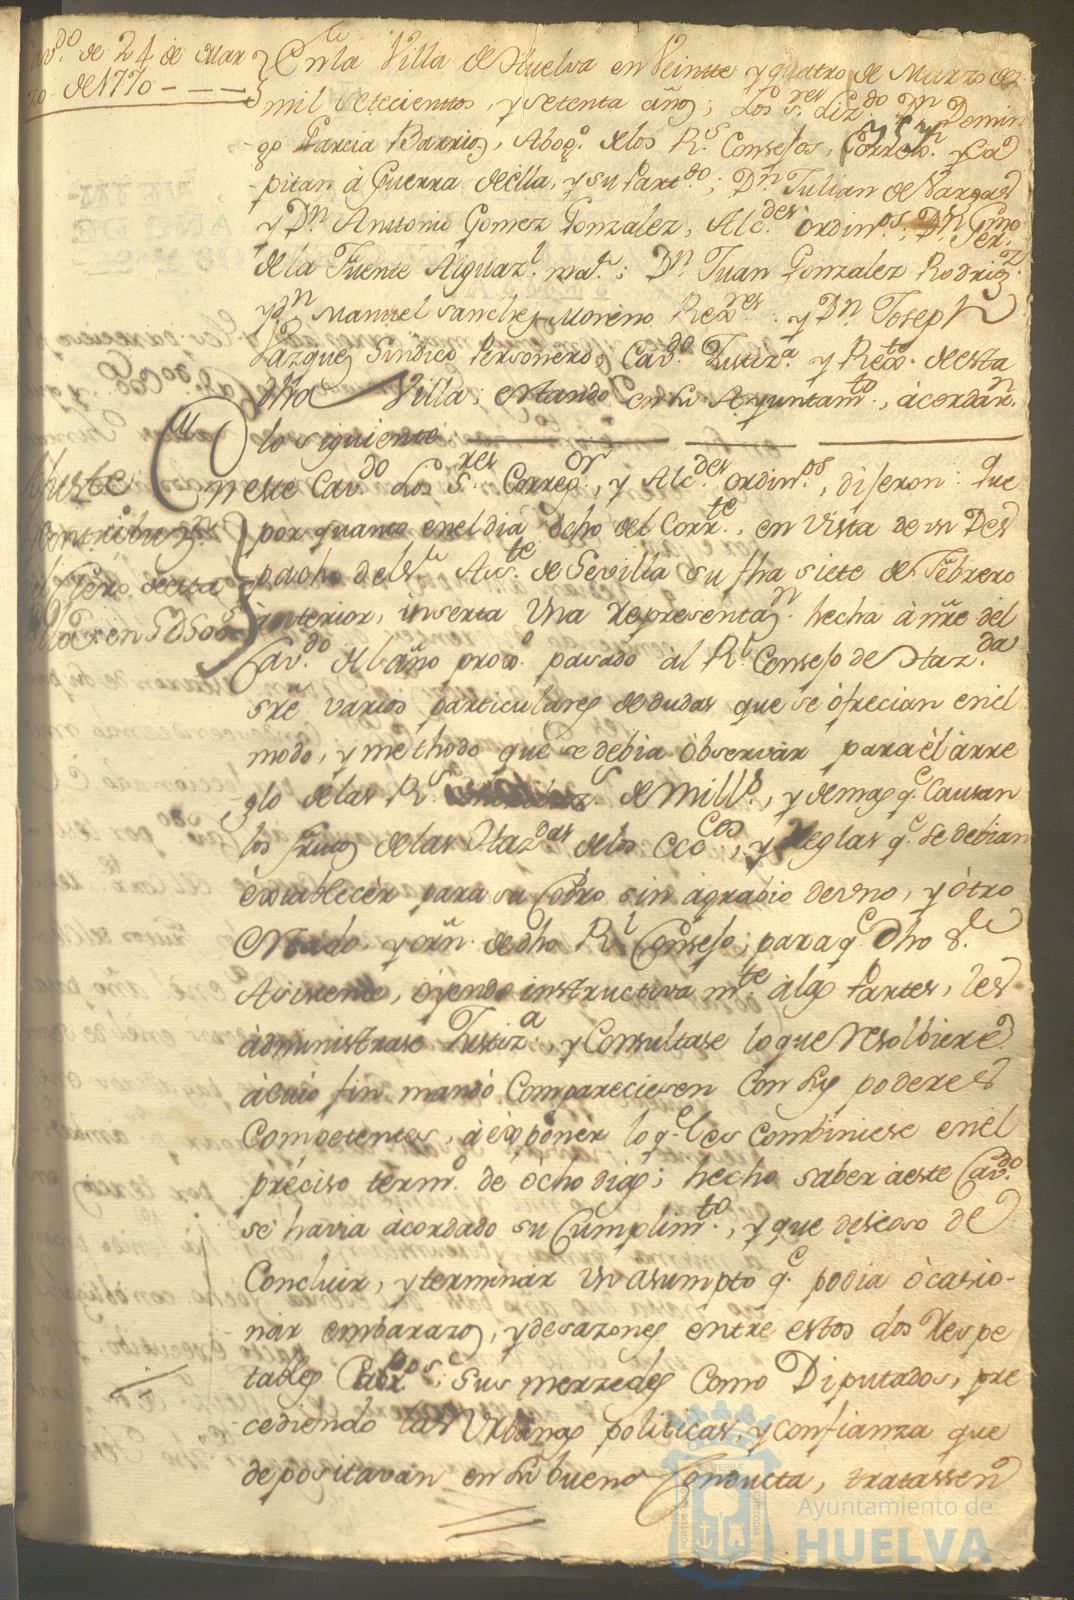 Cav.do de 24 de Mar
zo de 1770
En la Villa de Huelva en Veintte y quatro de Marzo de
mil setecienttos, y setenta años; Los S.res Liz.do D.n Domin
go Garcia Barrios, Abog.o de los R.s Consejos, Correg.r y Ca
pitan à Guerra de ella, y su Part.do; D.n Julian de Vargas
y D.n Anttonio Gomez Gonzalez, Alc.des ordin.os; D.n
de la Fuente Alguaz.l ma.r; D.n Juan Gonzalez Rodrig.z
y D.n Manuel Sanchez Moreno Rez.res y D.n Joseph
Vazquez Sindico Personero; Cav.do Justiz.a y Reg.to de esta
dha Villa; estando en su Ayuntam.to, acordar.n
lo siguiente
Ajuste
contribuz.n
en 5D500
En este Cav.do Los S.res Correg.or, y Alc.des ordin.os, dijeron: que
por quanto en el dia ocho del Corr.te, en vista de un Des
pacho del S.r Asis.te de Sevilla su fha siete de Febrero
anterior, inserta Una representaz.n hecha à nre del
Cav.do el año prox.o pasado al R.l Consejo de Haz.da
sre varios particulares de dudas que se ofrecian en el
modo, y methodo que se debia observar para el arre
glo de las R.s de Mill.s, y demas q.e Causan
los frutos de las Haz.das de los Ecc.cos, y Reglas q.e se debian
establecer para su Cobro sin agrabio de uno, y otro
Estado, y orn. de dho R.l Consejo; para q.e dho S.r
Asistente, oyendo instructiva m.te a las Partes, les
administrase Justiz.a, y Consultase lo que resolbiere
à cuio fin mandó Compareciesen con sus poderes
Competentes, à exponer lo q.e les combiniese en el
preciso term.o de ocho dias; hecho saber à este Cav.do
se havia acordado su Cumplim.to, y que deseoso de
Concluir, y terminar un asumpto q.e podia ocasio-
nar embarazos, y desazones entre estos dos Respe
tables Cuerpos; sus merzedes como Diputados, pre
cediendo las Urbanas politicas, y confianza que
depositavan en su buena Conducta, tratassen
Ayuntamiento de
HUELVA